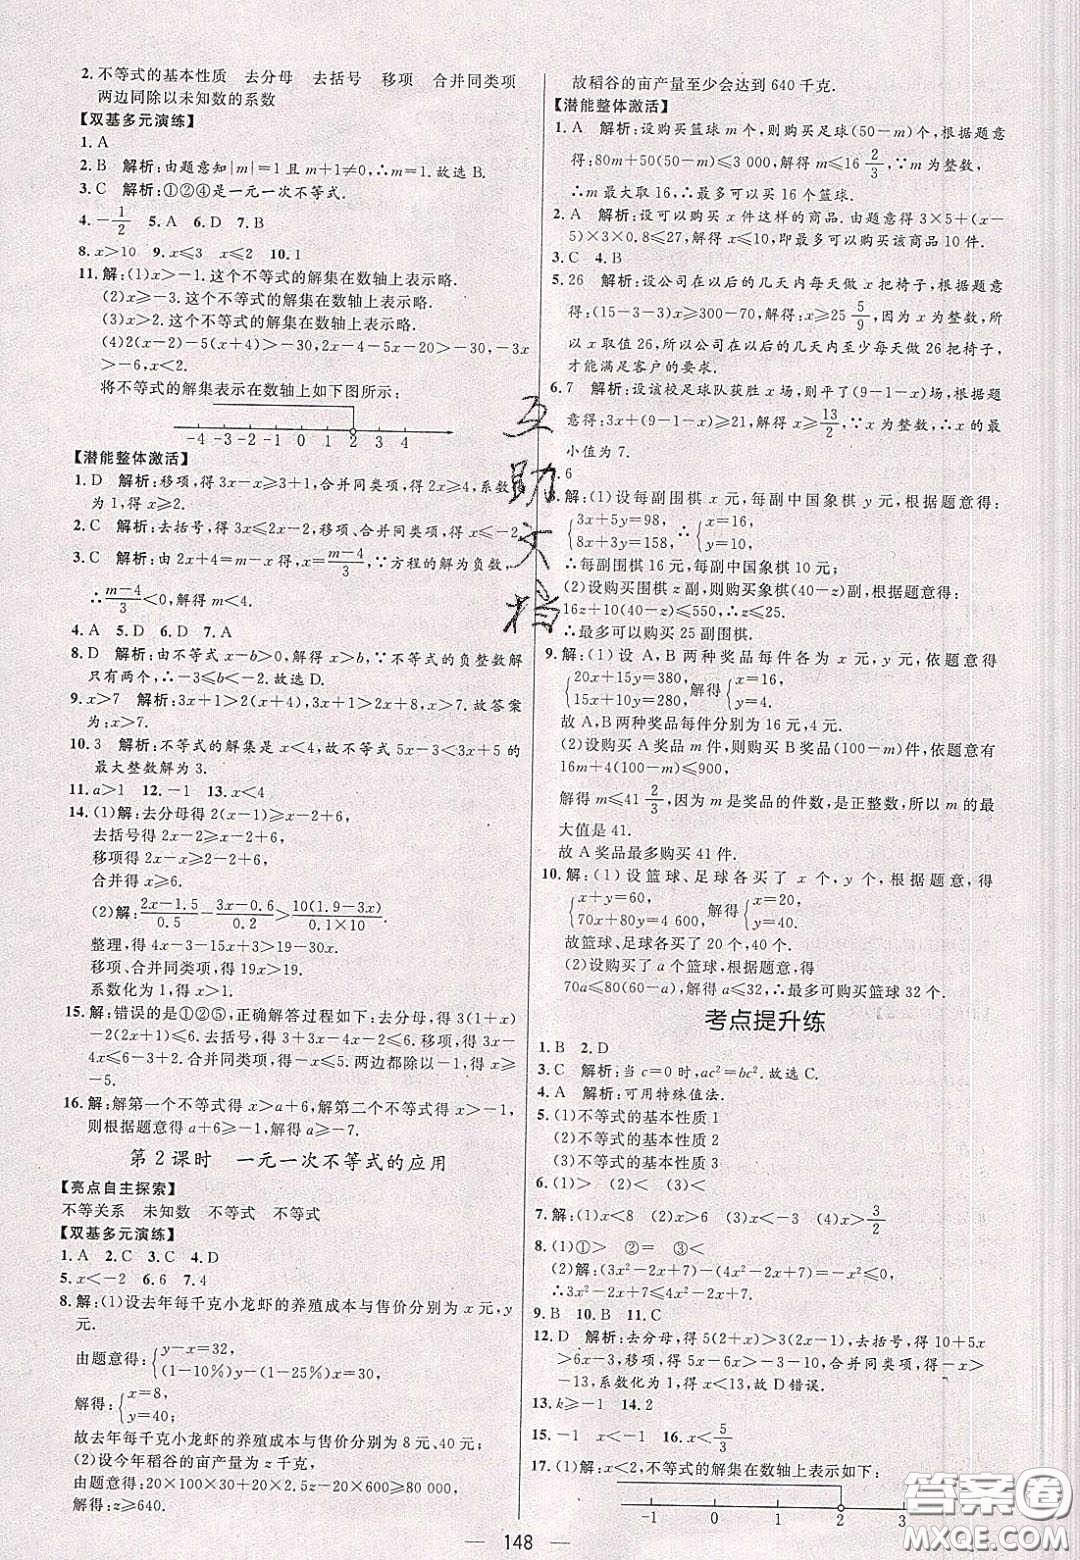 2. 不等式的基本性质　去分母　去括号　移项　合并同类项
两边同除以未知数的系数
【双基多元演练】
1. A
2. B　解析:由题意知|m|=1且m+1≠0,∴m=1.故选B.
3. C　解析:①②④是一元一次不等式.
4. -1/2　5. A　6. D　7. B
8. x>10　9. x≤3　x≤2　10. 1
11. 解:(1)x>-1. 这个不等式的解集在数轴上表示略.
(2)x≥-3. 这个不等式的解集在数轴上表示略.
(3)x>2. 这个不等式的解集在数轴上表示略.
(4)2(x-2)-5(x+4)>-30,2x-4-5x-20>-30,-3x
>-6,x<2.
将不等式的解集表示在数轴上如下图所示:
-4 -3 -2 -1 0 1 2 3 4
【潜能整体激活】
1. D　解析:移项,得3x-x≥3+1,合并同类项,得2x≥4,系数
为1,得x≥2.
2. C　解析:去括号,得3x≤2x-2,移项、合并同类项,得x≤-2.
3. C　解析:由2x+4=m-x得,x=(m-4)/3,∵方程的解为负数,
∴(m-4)/3<0,解得m<4.
4. A　5. D　6. D　7. A
8. D　解析:由不等式x-b>0,解得x>b,∵不等式的负整数解
只有两个,∴-3≤b<-2.故选D.
9. x>7　解析:4x+1>2(x+4),4x+1>2x+8,x>7.故答案
为:x>7.
10. 3　解析:不等式的解集是x<4,故不等式5x-3<3x+5的
最大整数解为3.
11. a>1　12. -1　13. x<4
14. (1)解:去分母得2(x-1)≥x-2+6,
去括号得2x-2≥x-2+6,
移项得2x-x≥2-2+6,
合并得x≥6.
(2)解:(2x-1.5)/0.5-(3x-0.6)/0.2>10(1.9-3x)/(0.1×10)
整理,得4x-3-15x+3>19-30x.
移项、合并同类项,得19x>19.
系数化为1,得x>1.
15. 解:错误的是①②⑤,正确解答过程如下:去分母,得3(1+x)
-2(2x+1)≤6.去括号,得3+3x-4x-2≤6.移项,得3x-
4x≤6-3+2.合并同类项,得-x≤5.两边都除以-1,得x≥
-5.
16. 解:解第一个不等式得x>a+6,解第二个不等式得x>-1,
则根据题意得a+6≥-1,解得a≥-7.
第2课时　一元一次不等式的应用
【亮点自主探索】
不等关系　未知数　不等式　不等式
【双基多元演练】
1. A　2. C　3. C　4. D
5. x<-2　6. 6　7. 4
8. 解:(1)设去年每千克小龙虾的养殖成本与售价分别为x元,y
元.
由题意得:{y-x=32,
(1-10%)y-(1-25%)x=30,
解得:{x=8,
y=40;
故去年每千克小龙虾的养殖成本与售价分别为8元、40元;
(2)设今年稻谷的亩产量为z千克,
由题意得:20×100×30+20×2.5z-20×600≥80 000,
解得:z≥640.
故稻谷的亩产量至少会达到640千克.
【潜能整体激活】
1. A　解析:设购买篮球m个,则购买足球(50-m)个,根据题意
得:80m+50(50-m)≤3 000,解得m≤16 2/3,∵m为整数,
∴m最大取16,∴最多可以购买16个篮球.
2. A　解析:设可以购买x件这样的商品.由题意得3×5+(x-
5)×3×0.8≤27,解得x≤10,即最多可以购买该商品10件.
3. C　4. B
5. 26　解析:设公司在以后的几天内每天做x把椅子,根据题意
得:(15-3-3)x≥300-70,解得:x≥25 5/9,∵x应为整数,所
以x取值26,所以公司在以后的几天内至少每天做26把椅子,
才能满足客户的要求.
6. 7　解析:设该校足球队获胜x场,则平了(9-1-x)场,根据题
意得:3x+(9-1-x)≥21,解得:x≥13/2,∵x为整数,∴x的最
小值为7.
6
解:(1)设每副围棋x元,每副中国象棋y元,根据题意得:
{3x+5y=98,
8x+3y=158, ∴{x=16,
y=10,
∴每副围棋16元,每副中国象棋10元;
(2)设购买围棋z副,则购买象棋(40-z)副,根据题意得:
16z+10(40-z)≤550,∴z≤25.
∴最多可以购买25副围棋.
9. 解:(1)设A,B两种奖品每件各为x元,y元,依题意得
{20x+15y=380,
15x+10y=280, 解得{x=16,
y=4.
故A,B两种奖品每件分别为16元,4元.
(2)设购买A奖品m件,则购买B奖品(100-m)件,依题意有
16m+4(100-m)≤900,
解得m≤41 2/3,因为m是奖品的件数,是正整数,所以m的最
大值是41.
故A奖品最多购买41件.
10. 解:(1)设篮球、足球各买了x个,y个,根据题意,得
{x+y=60,
70x+80y=4 600, 解得{x=20,
y=40.
故篮球、足球各买了20个,40个.
(2)设购买了a个篮球,根据题意,得
70a≤80(60-a),解得a≤32,∴最多可购买篮球32个.
考点提升练
1. B　2. D
3. C　解析:当c=0时,ac²=bc².故选C.
4. A　解析:可用特殊值法.
5. (1)不等式的基本性质1
(2)不等式的基本性质2
(3)不等式的基本性质3
6. (1)>　(2)<　(3)<　(4)<
7. 解:(1)x<8　(2)x>6　(3)x<-3　(4)x>3/2
8. (1)①>　②=　③<
(2)解:(3x²-2x+7)-(4x²-2x+7)=-x²≤0,
∴3x²-2x+7≤4x²-2x+7.
9. B　10. B　11. C
12. D　解析:去分母,得5(2+x)>3(2x-1),去括号,得10+5x
>6x-3,移项,得5x-6x>-3-10,合并同类项,得-x>
-13,系数化为1,得x<13,故D错误.
13. k≥-1　14. 2
15. -1　x<-1　16. x<5/3
17. (1)解:x<2,不等式的解集在数轴上表示如下:
-1 0 1 2 3
148
互助文档
答案圈
MXQE.COM